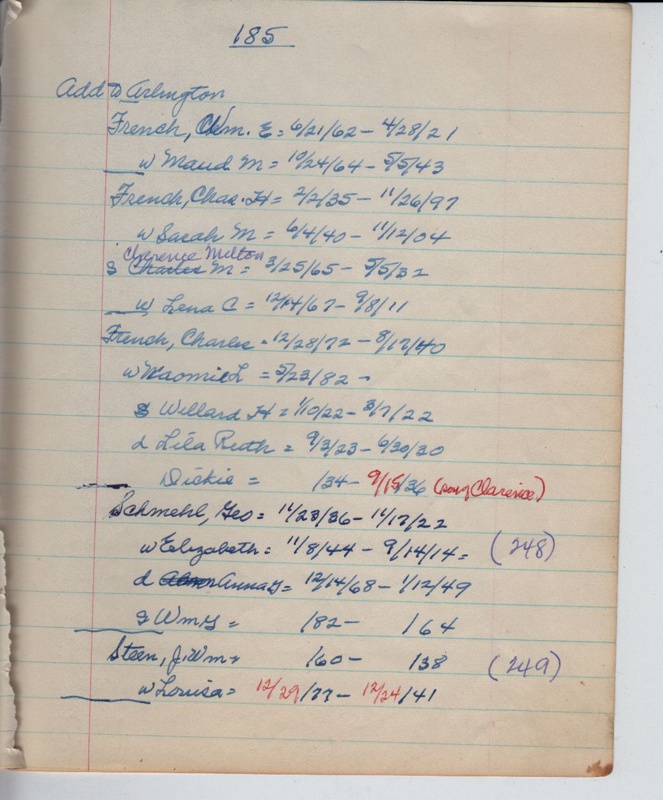 185
Add to Arlington
French, Wm. E = 6/21/62 - 4/28/21
w Maud M = 10/24/64 - 5/5/43
French, Chas. H = 2/2/35 - 11/26/97
w Sarah M = 6/4/40 - 11/12/04
Clarence Melton
s Charles M = 3/25/65 - 5/5/32
w Lena C = 12/14/67 - 9/8/11
French, Charles = 12/28/72 - 8/17/40
w Naomie L = 5/23/82 -
s Willard H = 1/10/22 - 3/7/22
d Lila Ruth = 9/3/23 - 6/30/30
Dickie = /34 - 9/15/36 (son of Clarence)
Schmehl, Geo = 11/23/36 - 11/17/22
w Elizabeth = 11/8/44 - 9/14/14 = (248)
d Anna G = 12/14/68 - 1/12/49
s Wm G = /82 - /64
Steen, J. Wm = /60 - /38 (249)
w Louisa = 12/29/77 - 12/24/41